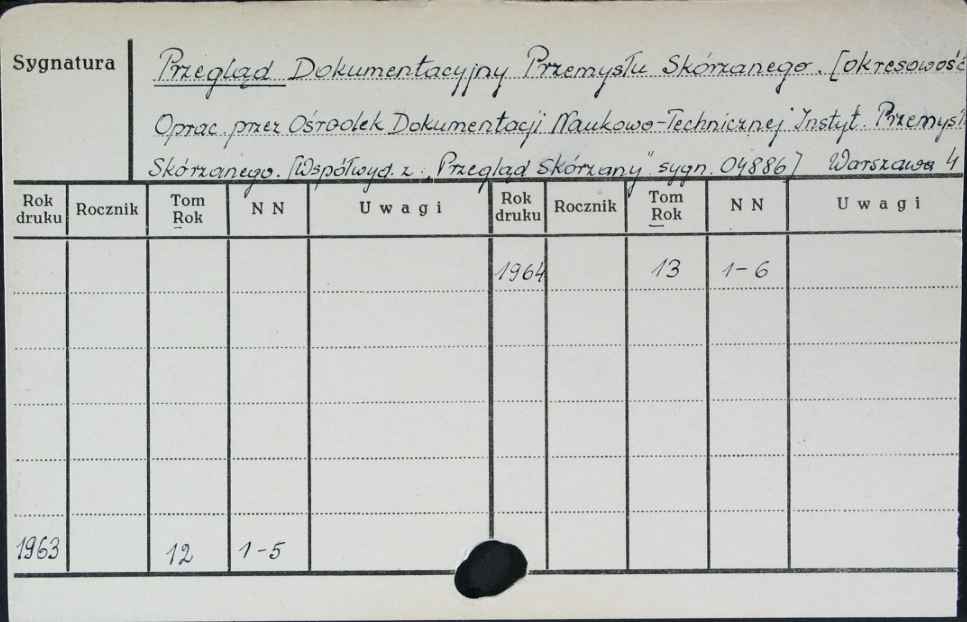 Sygnatura
Przegląd Dokumentacyjny Przemysłu Skórzanego. [okresowość
Oprac. przez Ośrodek Dokumentacji Naukowo-Technicznej Instyt. Przemysł
Skórzanego. [Współwyd. z : „Przegląd Skórzany" sygn. 04886] Warszawa 4
Rok druku Rocznik Tom Rok N N Uwagi Rok druku Rocznik Tom Rok N N Uwagi
1964 13 1-6
1963 12 1-5